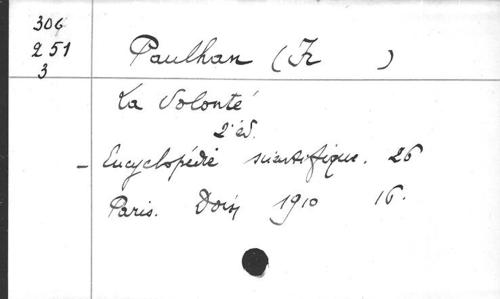 306
251
3
Paulhan (Fr )
La Volonté
2e éd.
– Encyclopédie scientifique. 26
Paris. Doin 1910 16.